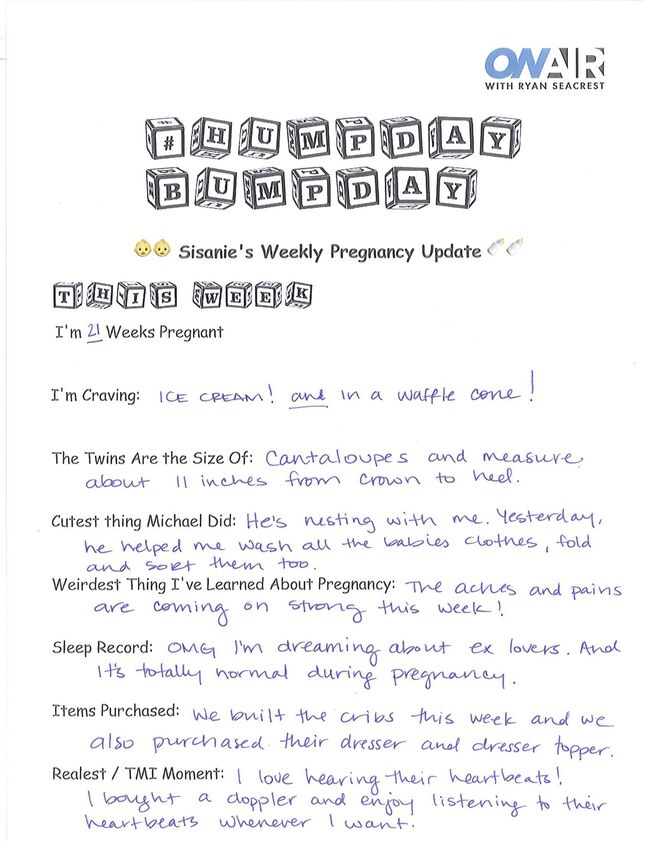 ON AIR
WITH RYAN SEACREST
#HUMPDAY
BUMPDAY
👶👶 Sisanie's Weekly Pregnancy Update 🍼🍼
THIS WEEK
I'm 21 Weeks Pregnant
I'm Craving: ICE CREAM! and in a waffle cone!
The Twins Are the Size Of: Cantaloupes and measure
about 11 inches from crown to heel.
Cutest thing Michael Did: He's nesting with me. Yesterday,
he helped me wash all the babies clothes, fold
and sort them too.
Weirdest Thing I've Learned About Pregnancy: The aches and pains
are coming on strong this week!
Sleep Record: OMG I'm dreaming about ex lovers. And
It's totally normal during pregnancy.
Items Purchased: We built the cribs this week and we
also purchased their dresser and dresser topper.
Realest / TMI Moment: I love hearing their heartbeats!
I bought a doppler and enjoy listening to their
heartbeats whenever I want.